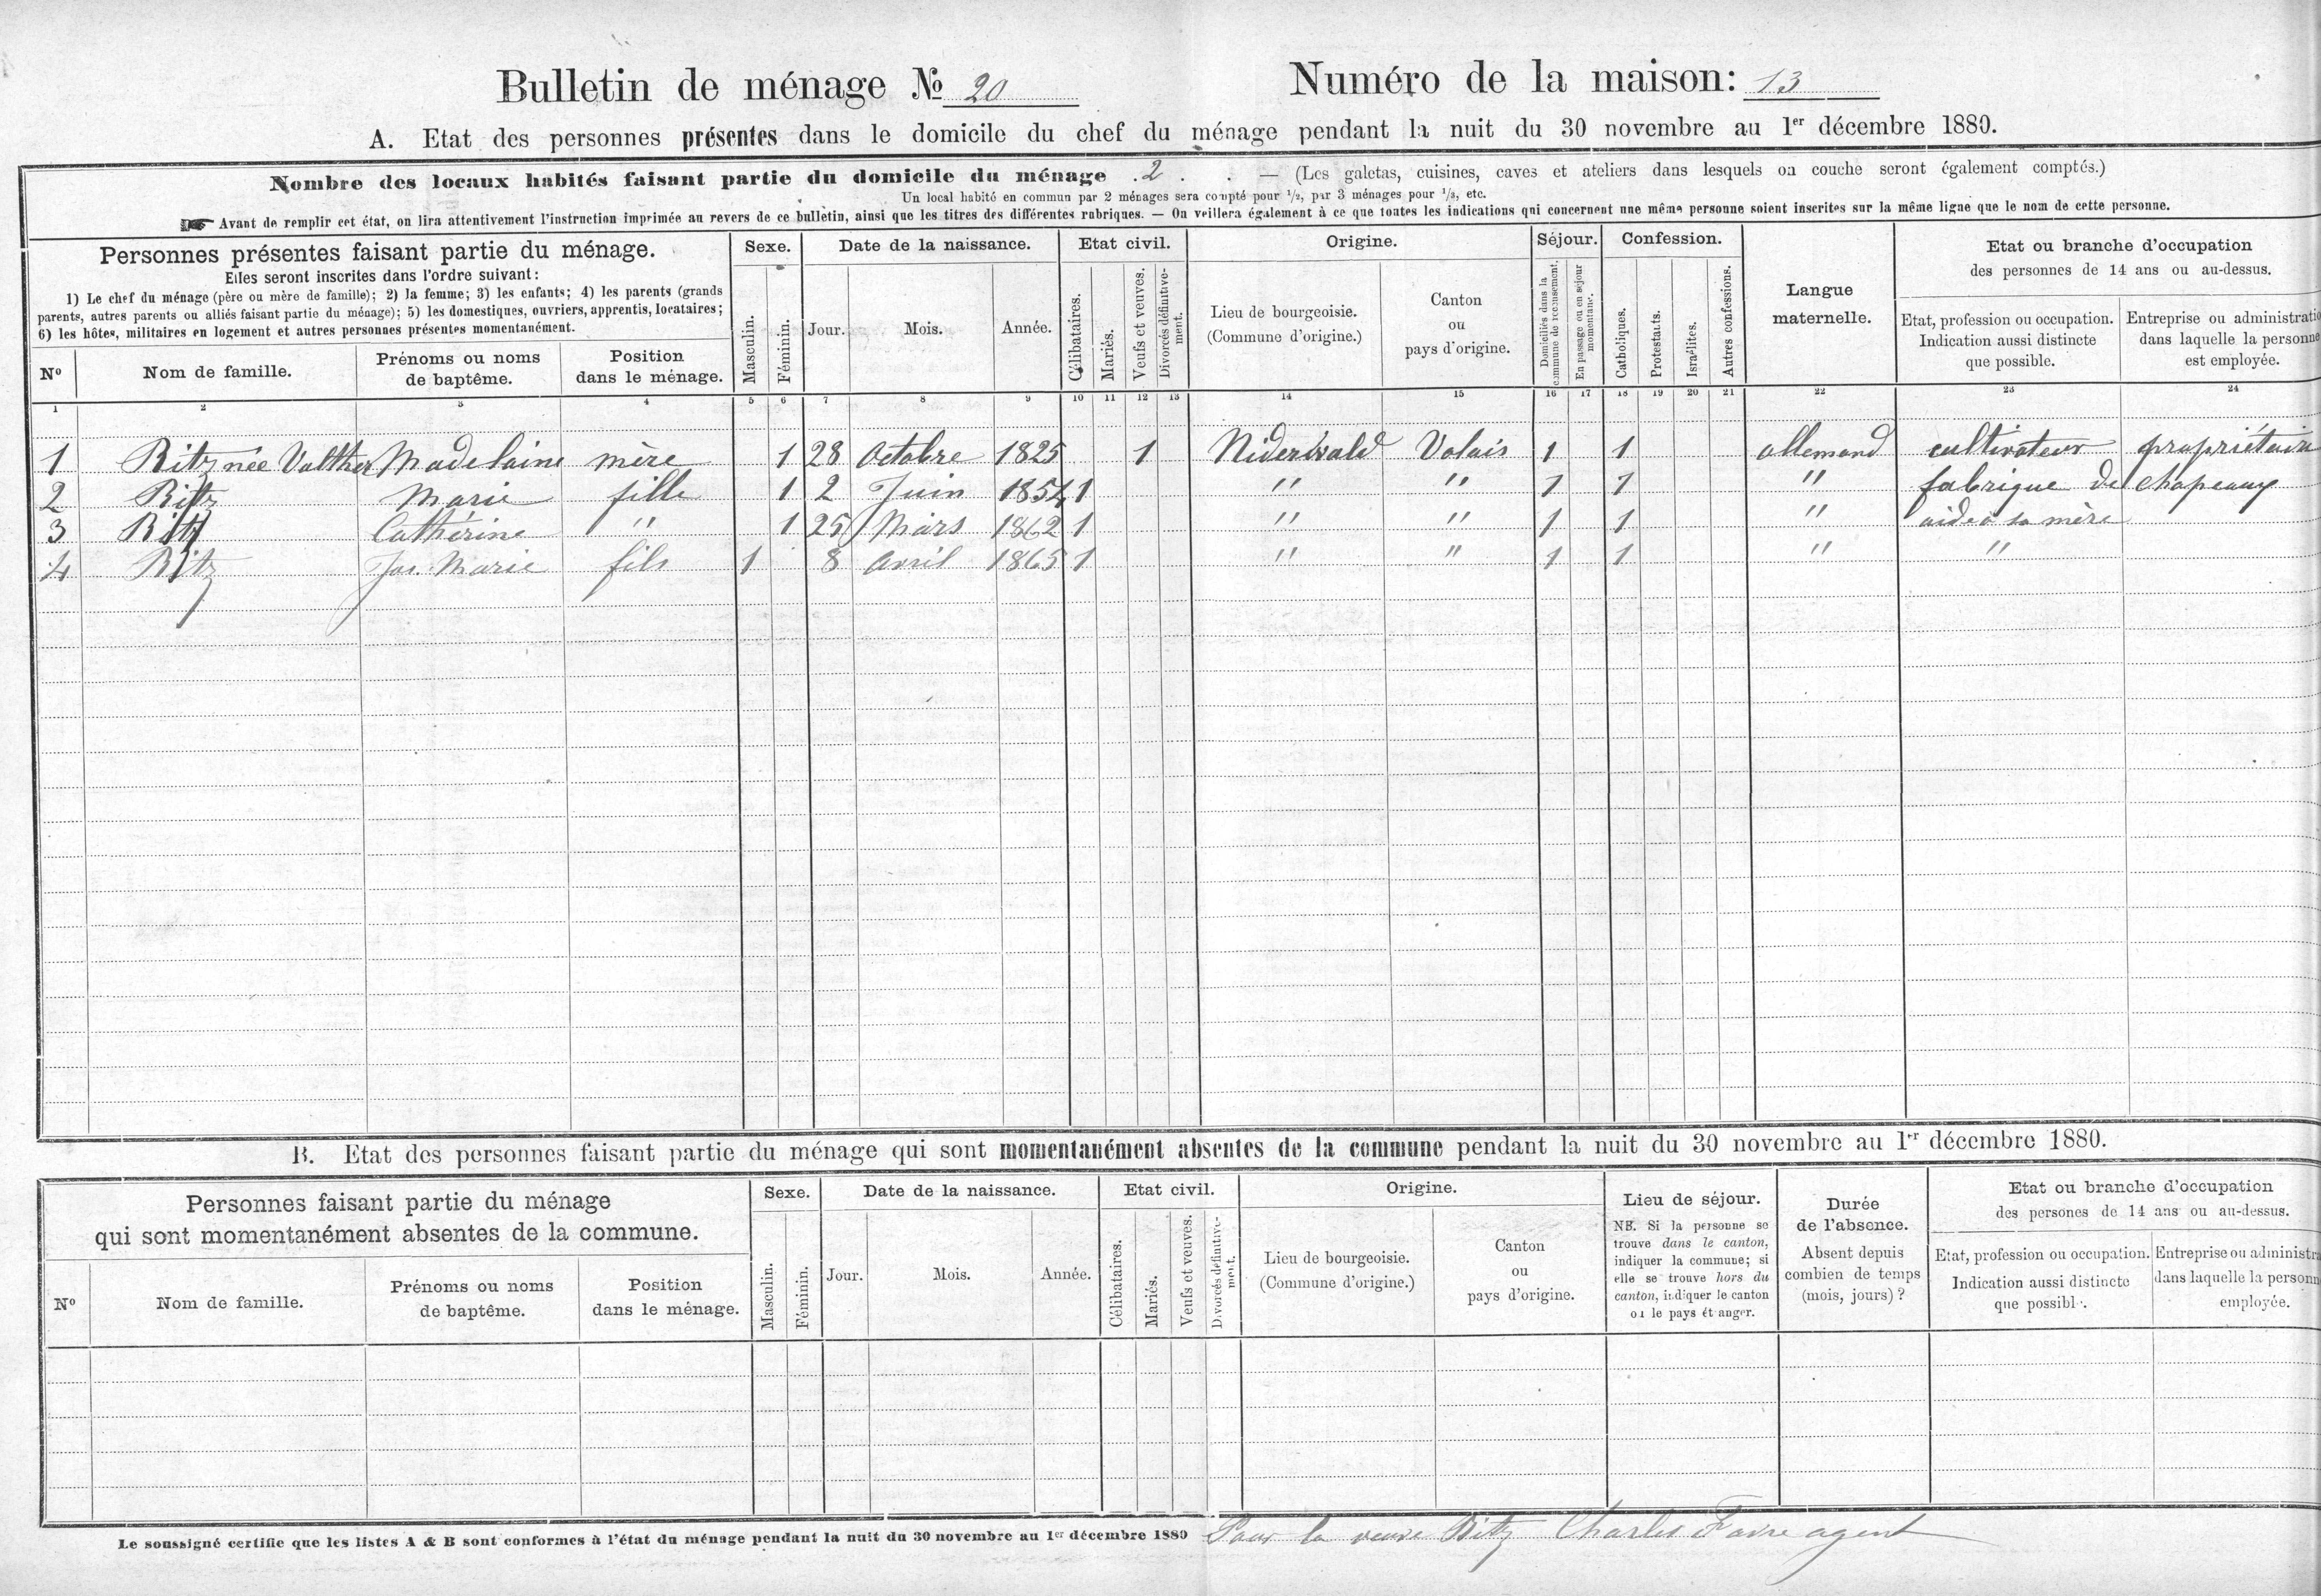 Bulletin de ménage № 20 Numéro de la maison: 13
A. Etat des personnes présentes dans le domicile du chef du ménage pendant la nuit du 30 novembre au 1er décembre 1880.
Nombre des locaux habités faisant partie du domicile du ménage . 2 . . — (Les galetas, cuisines, caves et ateliers dans lesquels on couche seront également comptés.)
Un local habité en commun par 2 ménages sera compté pour 1/2, par 3 ménages pour 1/3, etc.
☛ Avant de remplir cet état, on lira attentivement l'instruction imprimée au revers de ce bulletin, ainsi que les titres des différentes rubriques. — On veillera également à ce que toutes les indications qui concernent une même personne soient inscrites sur la même ligne que le nom de cette personne.
Personnes présentes faisant partie du ménage.
Elles seront inscrites dans l'ordre suivant:
1) Le chef du ménage (père ou mère de famille); 2) la femme; 3) les enfants; 4) les parents (grands
parents, autres parents ou alliés faisant partie du ménage); 5) les domestiques, ouvriers, apprentis, locataires;
6) les hôtes, militaires en logement et autres personnes présentes momentanément.
No Nom de famille. Prénoms ou noms de baptême. Position dans le ménage.
Sexe. Masculin. Féminin.
Date de la naissance. Jour. Mois. Année.
Etat civil. Célibataires. Mariés. Veufs et veuves. Divorcés définitive-ment.
Origine. Lieu de bourgeoisie. (Commune d'origine.) Canton ou pays d'origine.
Séjour. Domiciliés dans la commune de recensement. En passage ou en séjour momentané.
Confession. Catholiques. Protestants. Israélites. Autres confessions.
Langue maternelle.
Etat ou branche d'occupation
des personnes de 14 ans ou au-dessus.
Etat, profession ou occupation. Indication aussi distincte que possible.
Entreprise ou administratio dans laquelle la personne est employée.
1 2 3 4 5 6 7 8 9 10 11 12 13 14 15 16 17 18 19 20 21 22 23 24
1 Ritz née Valther Madelaine mère 1 28 Octobre 1825 1 Niderwald Valais 1 1 allemand cultivateur propriétaire
2 Ritz Marie fille 1 2 Juin 1854 1 " " 1 1 " fabrique de chapeaux
3 Ritz Cathérine " 1 25 Mars 1862 1 " " 1 1 " aide à sa mère
4 Ritz Jos. Marie fils 1 8 Avril 1865 1 " " 1 1 " "
B. Etat des personnes faisant partie du ménage qui sont momentanément absentes de la commune pendant la nuit du 30 novembre au 1er décembre 1880.
Personnes faisant partie du ménage
qui sont momentanément absentes de la commune.
No Nom de famille. Prénoms ou noms de baptême. Position dans le ménage.
Sexe. Masculin. Féminin.
Date de la naissance. Jour. Mois. Année.
Etat civil. Célibataires. Mariés. Veufs et veuves. Divorcés définitive-ment.
Origine. Lieu de bourgeoisie. (Commune d'origine.) Canton ou pays d'origine.
Lieu de séjour.
NB. Si la personne se
trouve dans le canton,
indiquer la commune; si
elle se trouve hors du
canton, indiquer le canton
ou le pays étranger.
Durée
de l'absence.
Absent depuis
combien de temps
(mois, jours)?
Etat ou branche d'occupation
des persones de 14 ans ou au-dessus.
Etat, profession ou occupation. Indication aussi distincte que possible.
Entreprise ou administra dans laquelle la personn employée.
Le soussigné certifie que les listes A & B sont conformes à l'état du ménage pendant la nuit du 30 novembre au 1er décembre 1880 Pour la veuve Ritz Charles Favre agent